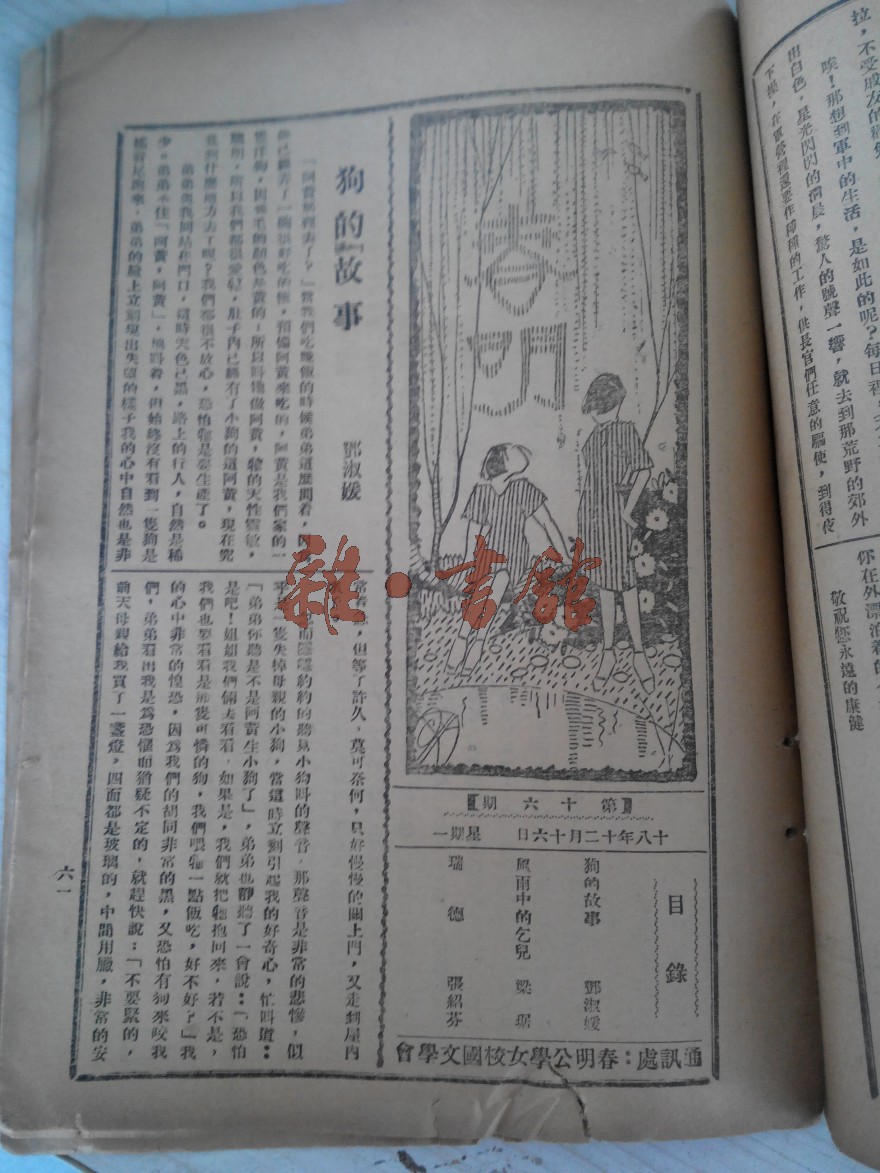 拉，不受
唉！那想到軍中的生活，是如此的呢？每日裡，
出白色，星光閃閃的清晨，驚人的號聲一響，就去到那荒野的郊外
下操，在軍營裡還要作種種的工作，供長官們任意的驅使，到得夜
你在外漂泊着的
敬祝您永遠的康健
春明
【第十六期】
十八年十二月十六日 星期一
目錄
狗的故事 鄧淑媛
風雨中的乞兒 梁琚
瑞德 張紹芬
通訊處：春明公學女校國文學會
狗的故事
鄧淑媛
「阿黃那裡去了？」當我們吃晚飯的時候弟弟這麼問着，因
已經弄了一碗很好吃的飯，預備阿黃來吃的，阿黃是我們家的一
隻洋狗，因牠毛的顏色是黃的，所以叫牠做阿黃，牠的天性靈敏，
聰明，所以我們都很愛牠，肚子內已經有了小狗的這阿黃，現在究
竟到什麼地方去了呢？我們都很不放心，恐怕牠是要生產了。
弟弟與我同站在門口，這時天色已黑，路上的行人，自然是稀
少。弟弟不住「阿黃，阿黃」，地叫着，但始終沒有看到一隻狗是
搖着尾跑來，弟弟的臉上立刻現出失望的樣子我的心中自然也是非
常，但等了許久，莫可奈何，只好慢慢的關上門，又走到屋內
而隱隱約約的聽見小狗叫的聲音，那聲音是非常的悲慘，似
乎是一隻失掉母親的小狗，當這時立刻引起我的好奇心，忙叫道：
「弟弟你聽是不是阿黃生小狗了」，弟弟也靜聽了一會說：「恐怕
是吧！姐姐我們倆去看看，如果是，我們就把牠抱回來，若不是，
我們也要看看是那隻可憐的狗，我們喂牠一點飯吃，好不好？」我
的心中非常的惶恐，因為我們的胡同非常的黑，又恐怕有狗來咬我
們，弟弟看出我是為恐懼而猶疑不定的，就趕快說：「不要緊的，
前天母親給我買了一盞燈，四面都是玻璃的，中間用臘，非常的安
六一
雜·書館